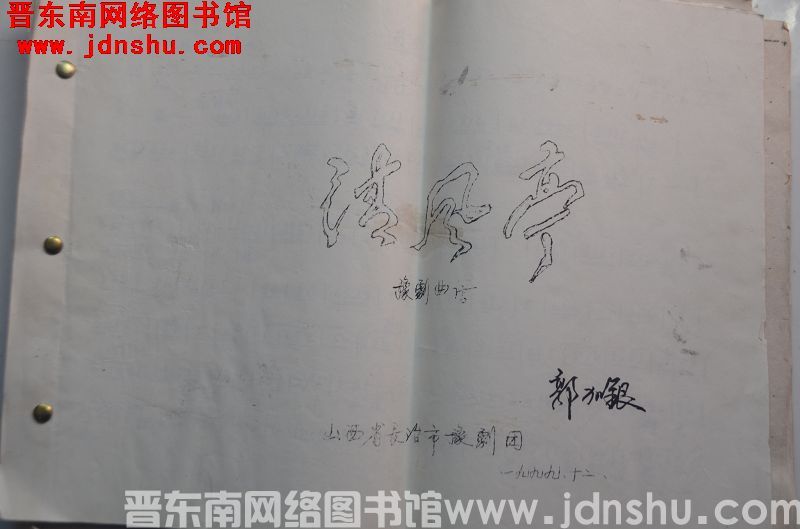 晋东南网络图书馆
www.jdnshu.com
清风亭
豫剧曲谱
郭加银
山西省长治市豫剧团
一九九九.十二.
晋东南网络图书馆www.jdnshu.com